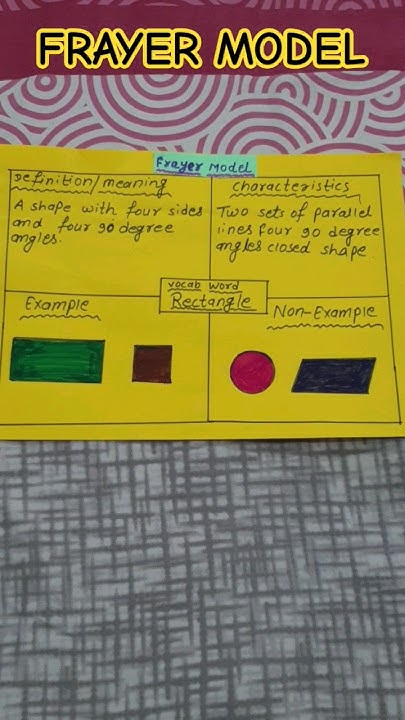 FRAYER MODEL
Frayer Model
Definition/meaning
A shape with four sides
and four 90 degree
angles.
Characteristics
Two sets of parallel
lines four 90 degree
angles closed shape
vocab word
Rectangle
Example
Non-Example